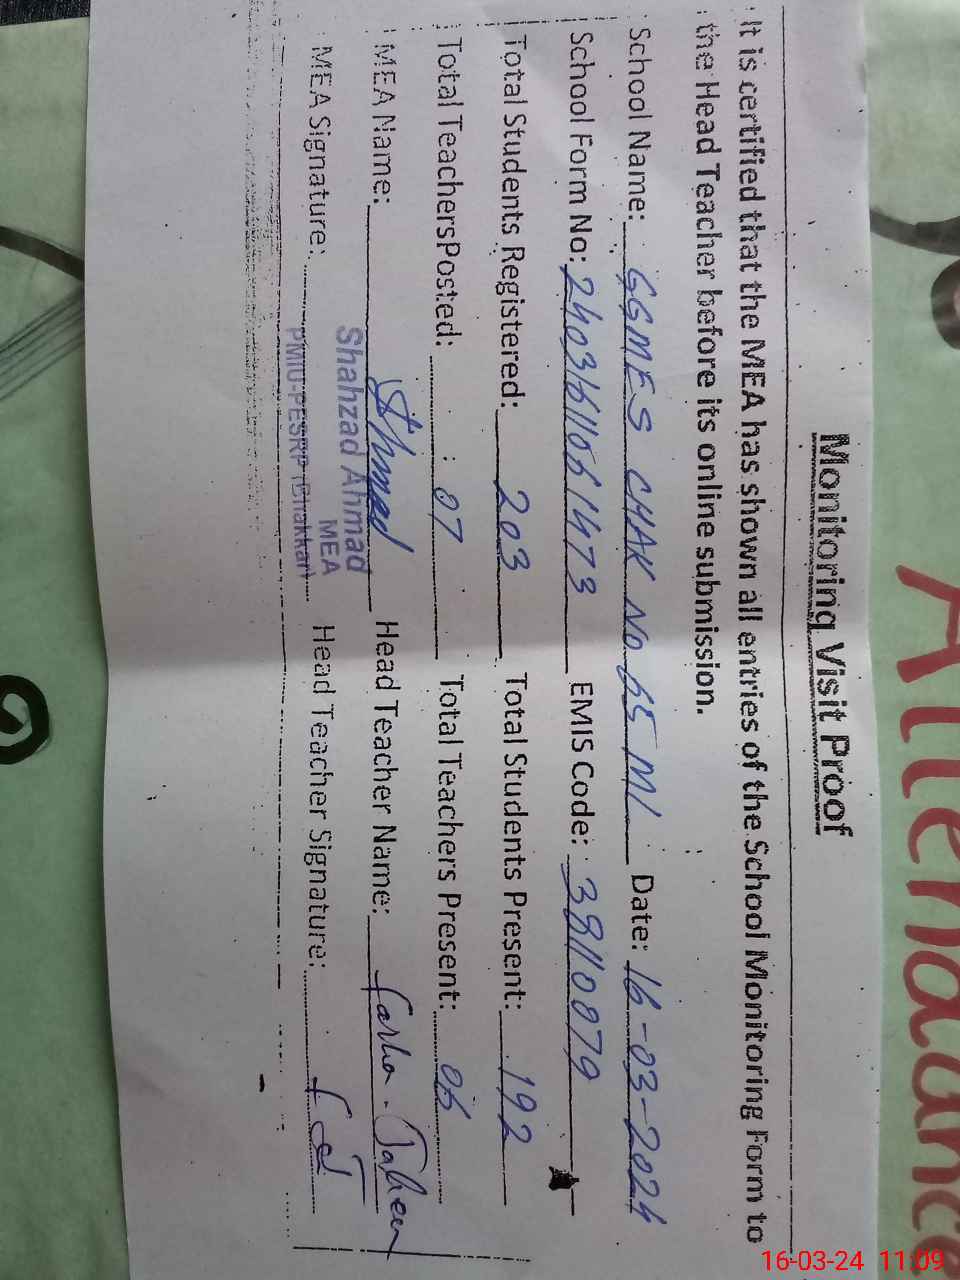 Monitoring Visit Proof
It is certified that the MEA has shown all entries of the School Monitoring Form to
the Head Teacher before its online submission.
School Name: GGMES CHAK No 65 ML Date: 16-03-2024
School Form No: EMIS Code: 38110079
Total Students Registered: 203 Total Students Present: 192
Total TeachersPosted: 07 Total Teachers Present: 06
MEA Name: Head Teacher Name: Farha
MEA Signature: Head Teacher Signature:
Shahzad Ahmad
MEA
PMIU-PESRP (Bhakkar)
Attendance
16-03-24 11:09